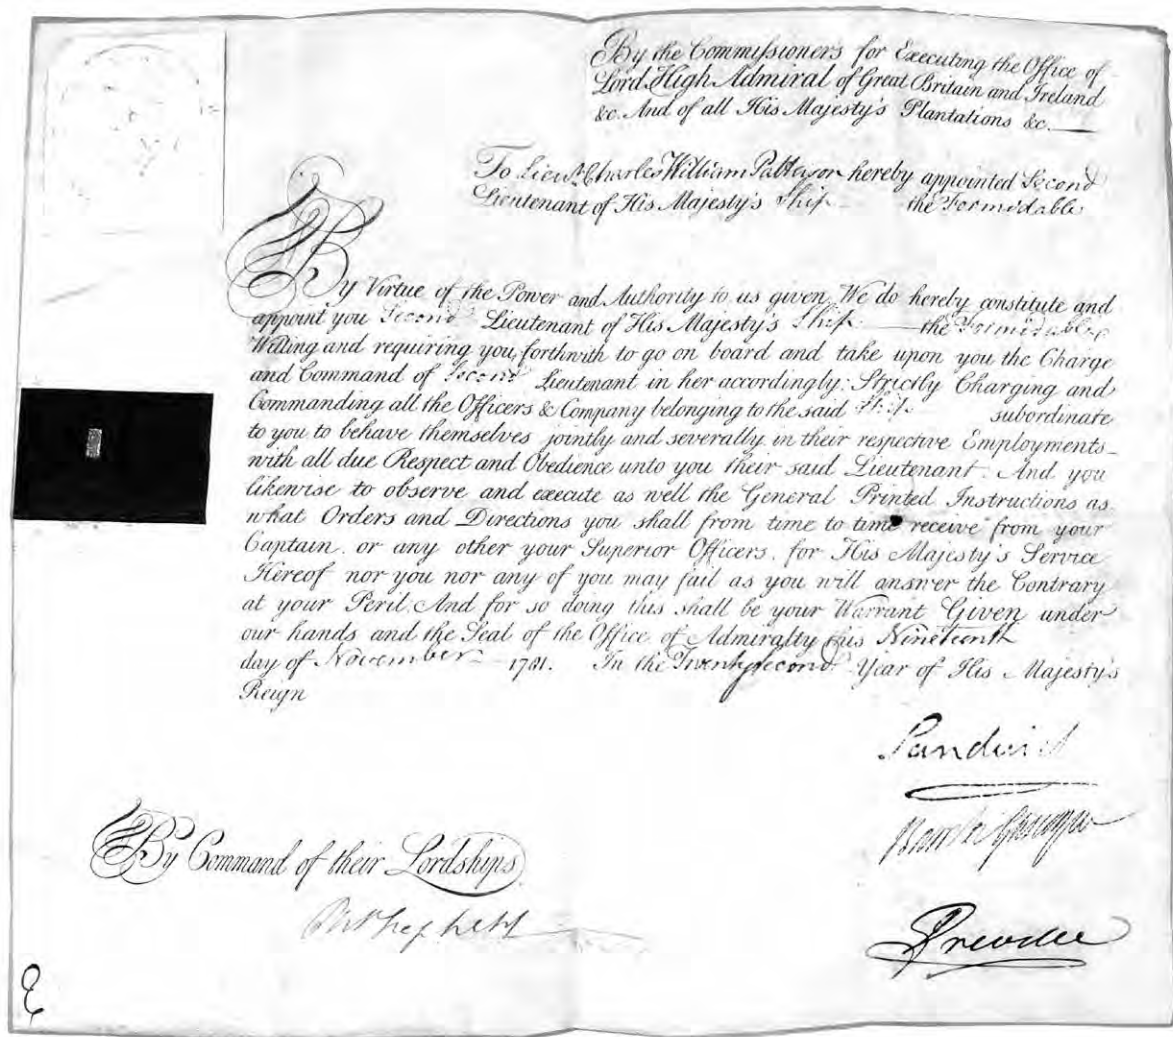 By the Commissioners for Executing the Office of
Lord High Admiral of Great Britain and Ireland
&c. And of all His Majesty's Plantations &c.
To Lieut. Charles William Patterson hereby appointed Second
Lieutenant of His Majesty's Ship the Formidable
By Virtue of the Power and Authority to us given We do hereby constitute and
appoint you Second Lieutenant of His Majesty's Ship the Formidable
Willing and requiring you forthwith to go on board and take upon you the Charge
and Command of Second Lieutenant in her accordingly: Strictly Charging and
Commanding all the Officers & Company belonging to the said Ship subordinate
to you to behave themselves jointly and severally in their respective Employments
with all due Respect and Obedience unto you their said Lieutenant. And you
likewise to observe and execute as well the General Printed Instructions as
what Orders and Directions you shall from time to time receive from your
Captain or any other your Superior Officers for His Majesty's Service
Hereof nor you nor any of you may fail as you will answer the Contrary
at your Peril. And for so doing this shall be your Warrant Given under
our hands and the Seal of the Office of Admiralty this Nineteenth
day of November 1781. In the Twenty second Year of His Majesty's
Reign
Sandwich
By Command of their Lordships